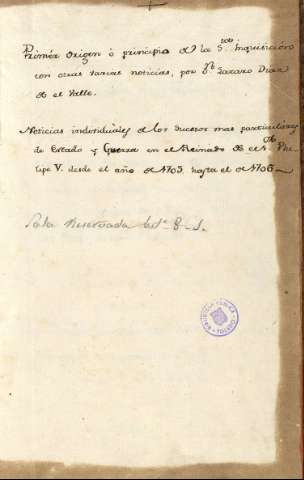 Primèr origen ò principio de la S.ta Inquisición
con otras varias noticias, por D.n Lazaro Diaz
de el Valle.
Noticias individuales de los sucesos mas particulares
de Estado y Guerra en el Reinado de el S. Phe-
lipe V. desde el año de 1703, hasta el de 1706
Sala Reservada
BIBLIOTECA PUBLICA
TOLEDO